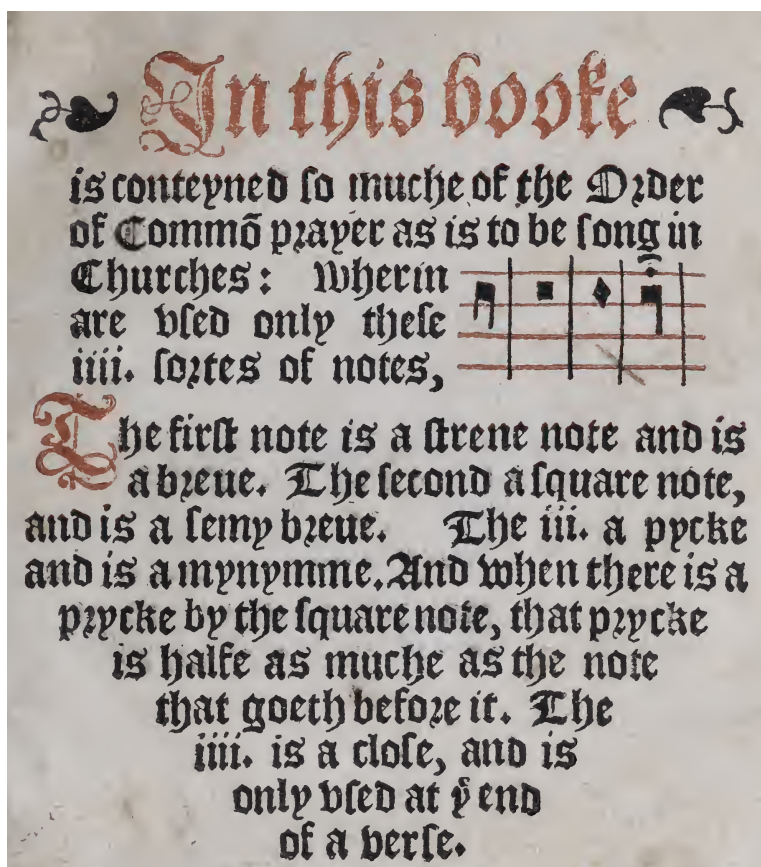 In this booke
is conteyned so muche of the Order
of Commõ prayer as is to be song in
Churches: wherin
are vsed only these
iiii. sortes of notes,
The first note is a strene note and is
a breue. The second a square note,
and is a semy breue. The iii. a pycke
and is a mynymme. And when there is a
prycke by the square note, that prycke
is halfe as muche as the note
that goeth before it. The
iiii. is a close, and is
only vsed at yͤ end
of a verse.